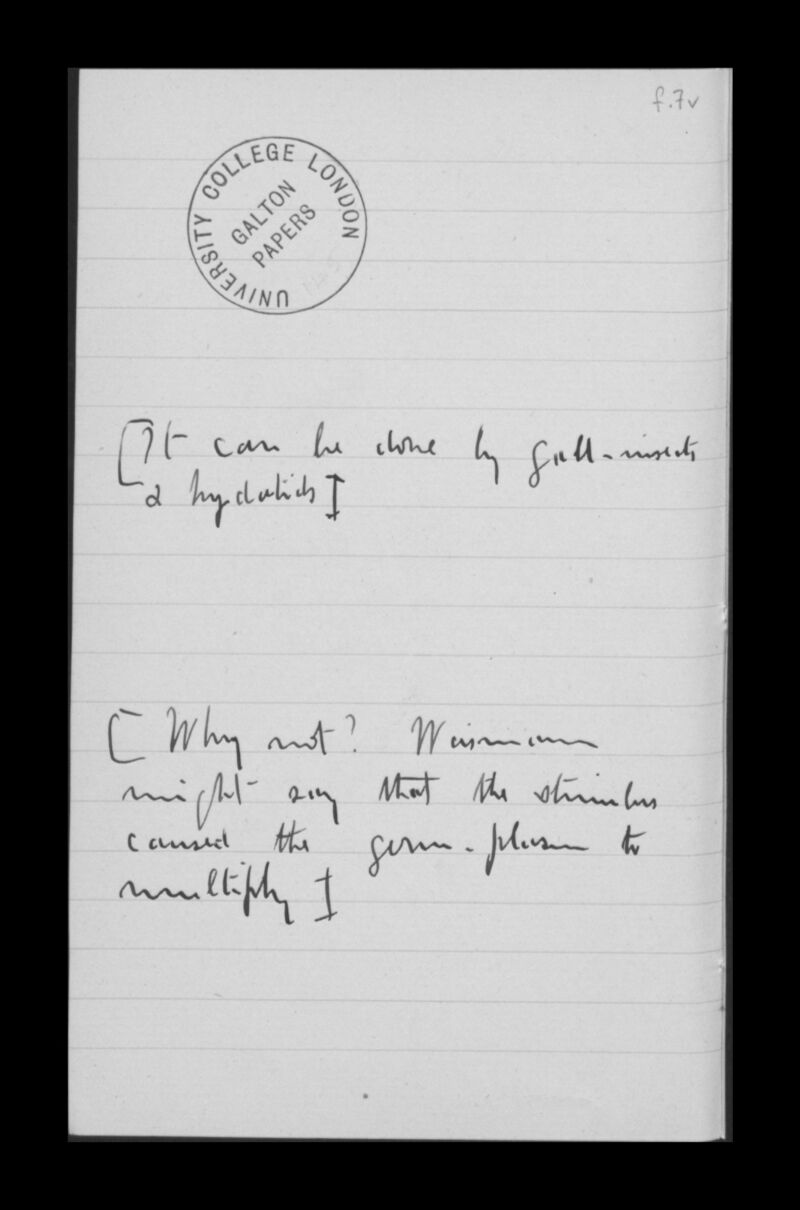 f.7v
UNIVERSITY COLLEGE LONDON
GALTON
PAPERS
[It can be done by gall-insects
& hydatids]
[Why not? Weismann
might say that the stimulus
caused the germ-plasm to
multiply]